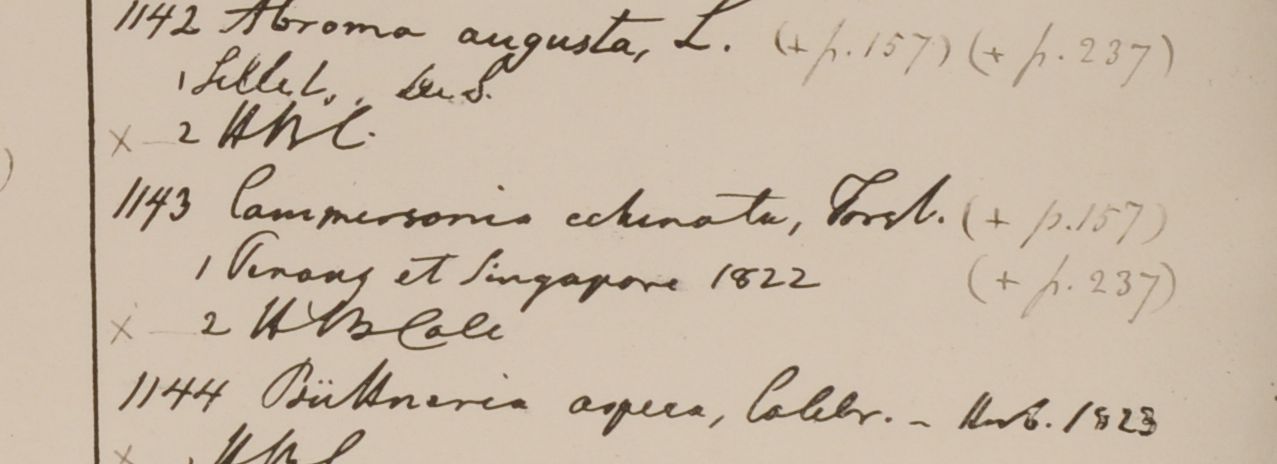 1142 Abroma augusta, L. (+ p.157) (+ p. 237)
1 Sillet., De S.
x 2 HBC.
1143 Commersonia echinata, Forst. (+ p.157)
1 Penang et Singapore 1822 (+ p. 237)
x 2 HB Calc
1144 Büttneria aspera, Colebr. - Herb. 1823
x 1 HBC